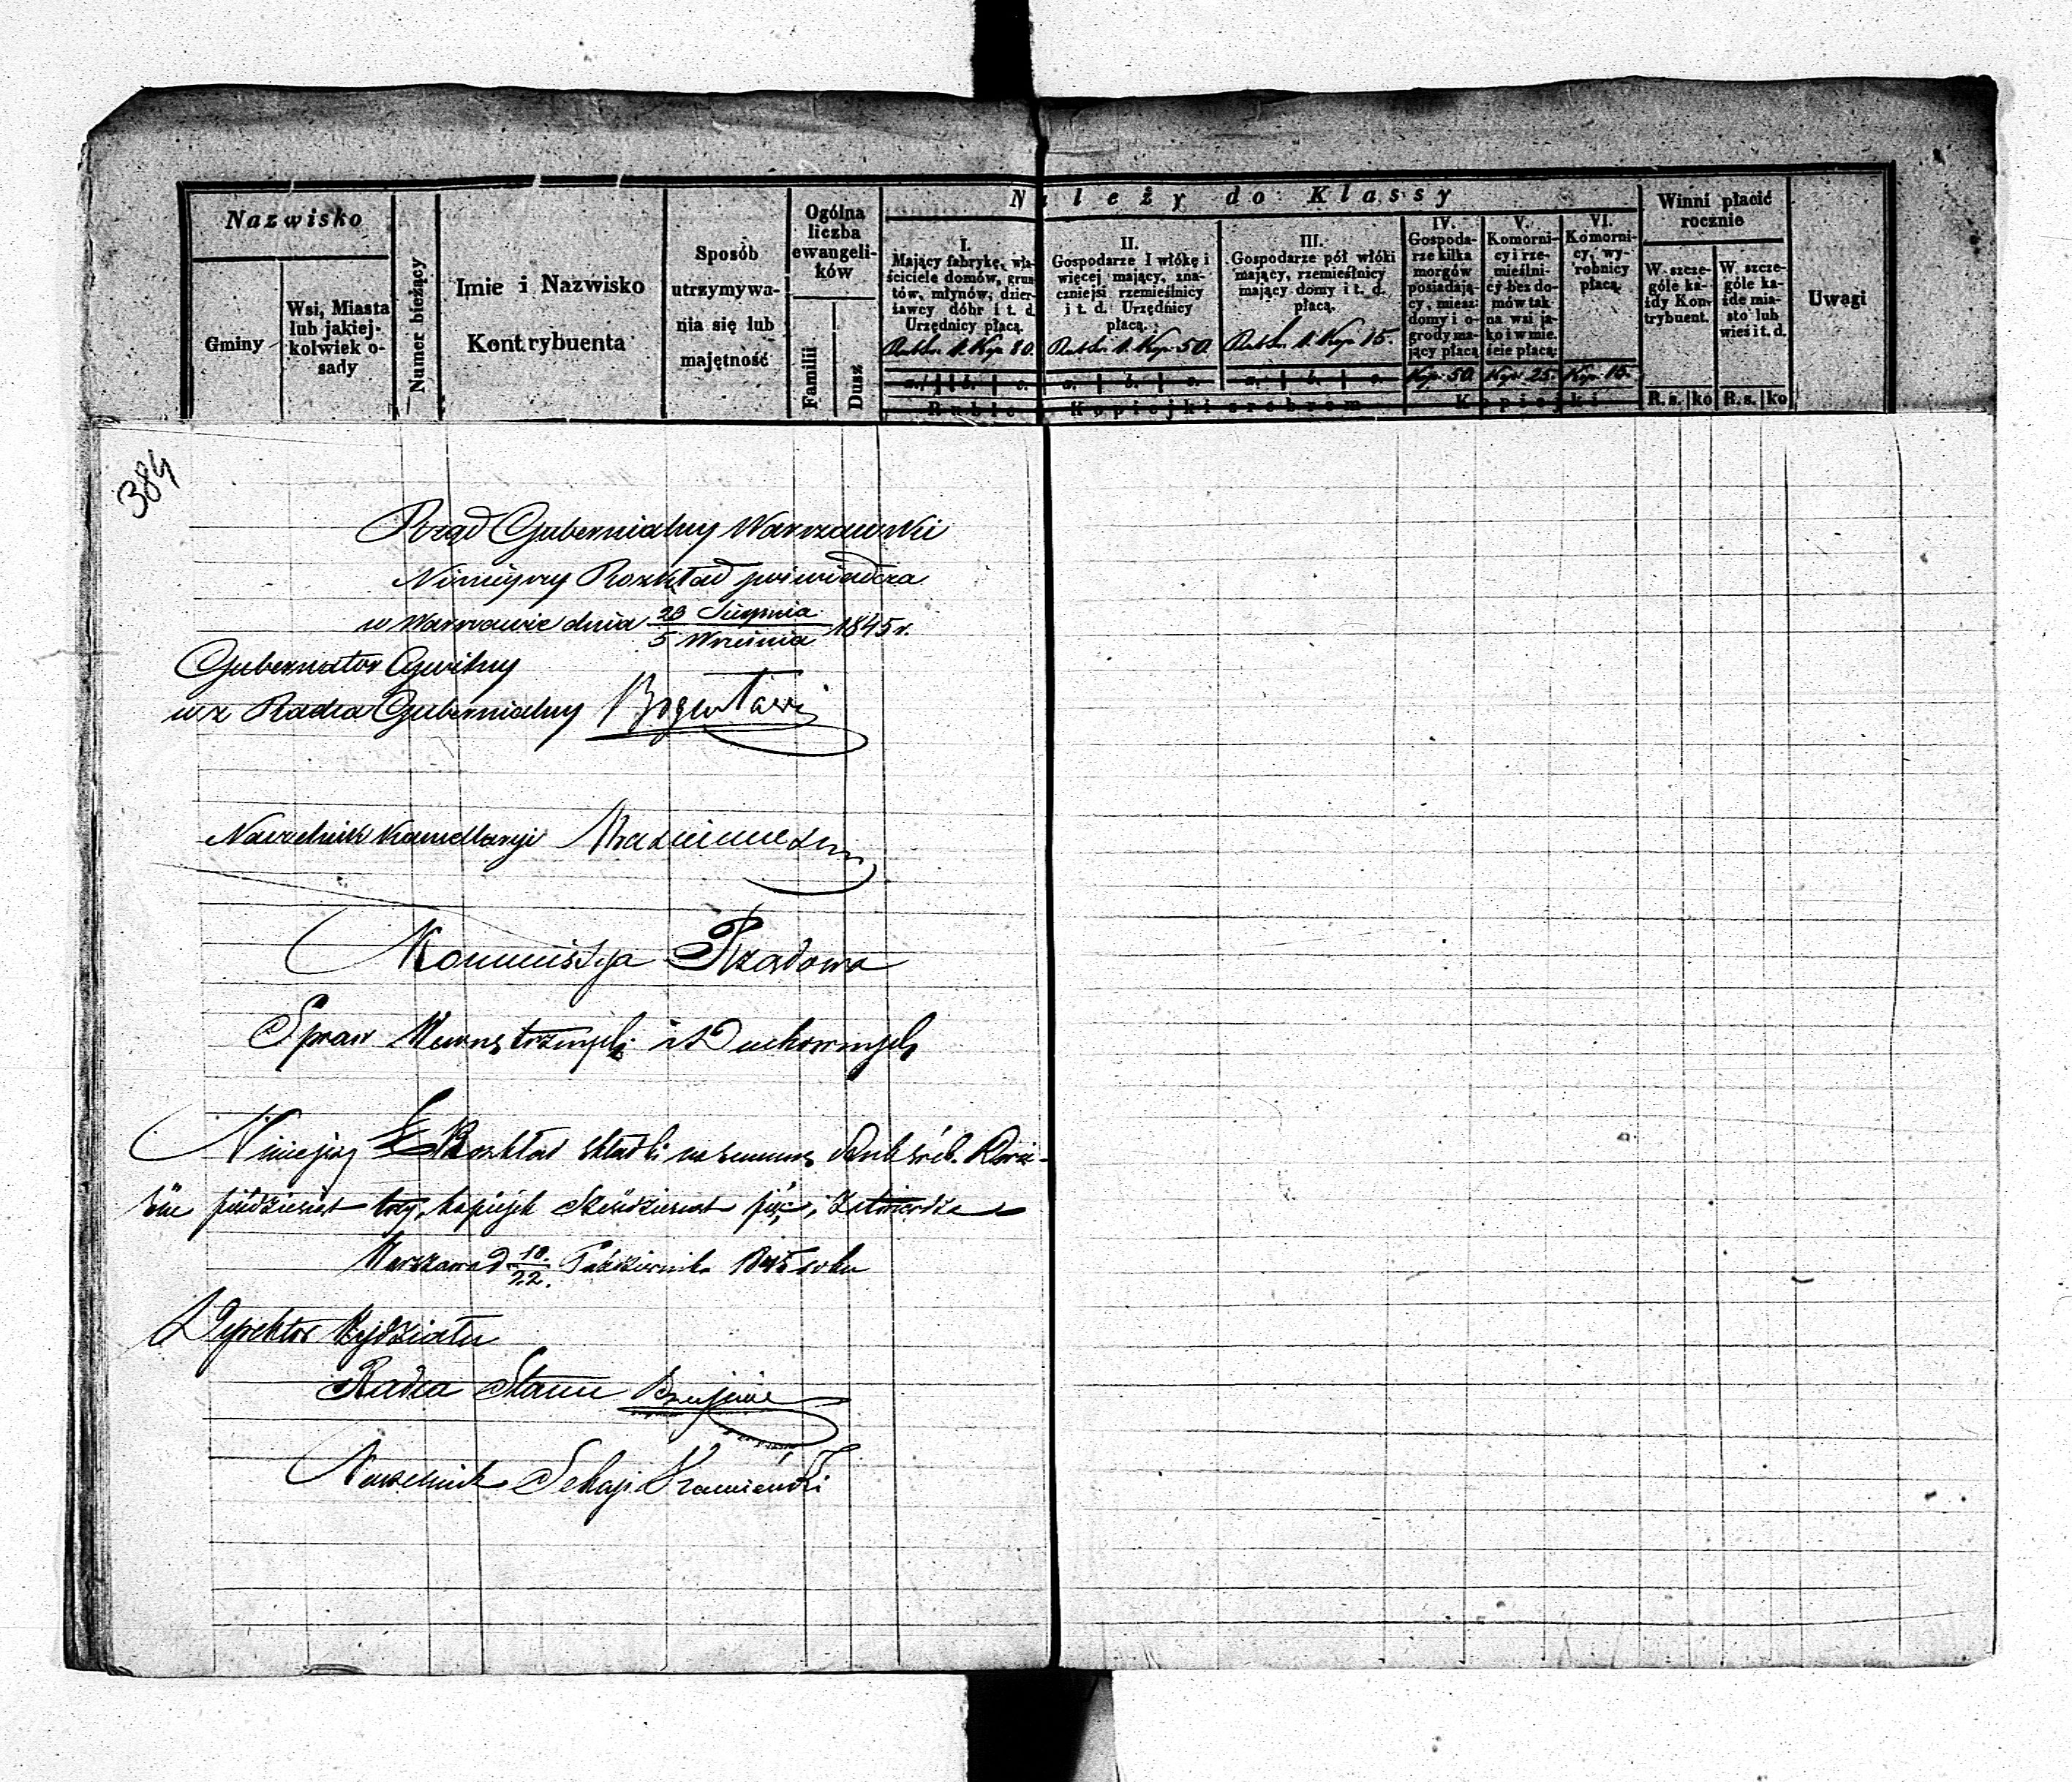 Nazwisko
Gminy
Wsi, Miasta
lub jakiej-
kolwiek o-
sady
Numer bieżący
Imie i Nazwisko
Kontrybuenta
Sposób
utrzymywa-
nia się lub
majętność
Ogólna
liczba
ewangeli-
ków
Familii
Dusz
Należy do Klassy
I.
Mający fabrykę, wła-
ściciele domów, grun-
tów, młynów, dzier-
żawcy dóbr i t. d.
Urzędnicy płacą.
Kop. 80.
II.
Gospodarze I włókę i
więcej mający, zna-
czniejśi rzemieślnicy
i t. d. Urzędnicy
płacą.
Kop. 50.
III.
Gospodarze pół włóki
mający, rzemieślnicy
mający domy i t. d.
płacą.
Kop. 15.
IV.
Gospoda-
rze kilka
morgów
posiadają-
cy, miesz:
domy i o-
grody ma-
jący płacą
Kop. 50
V.
Komorni-
cy i rze-
mieślni-
cy bez do-
mów tak
na wsi ja-
ko i w mie-
ście płacą:
Kop. 25.
VI.
Komorni-
cy, wy-
robnicy
płacą.
Kop. 15.
a. | b. | c. a. | b. | c. a. | b. | c.
Ruble Kopiejki srebrem Kopiejki
Winni płacić
rocznie
W szcze-
góle ka-
żdy Kon-
trybuent.
W szcze-
góle ka-
żde mia-
sto lub
wieś i t. d.
R. s. | ko R. s. | ko
Uwagi
384
Rząd Gubernialny Warszawski
Niniejszy Rozkład poświadcza
w Warszawie dnia 23 Sierpnia / 5 Września 1845 r.
Gubernator Cywilny
wz Radca Gubernialny
Naczelnik Kancellaryi
Kommissya Rządowa
Spraw Wewnętrznych i Duchownych
Niniejszy Rozkład składki na summę Rub. sréb.
pięćdziesiąt trzy, kopiejek sześćdziesiąt pięć, zatwierdza
Warszawa d. 10/22. Października 1845 roku
Dyrektor Wydziału
Radca Stanu
Naczelnik Sekcyi Kamieński